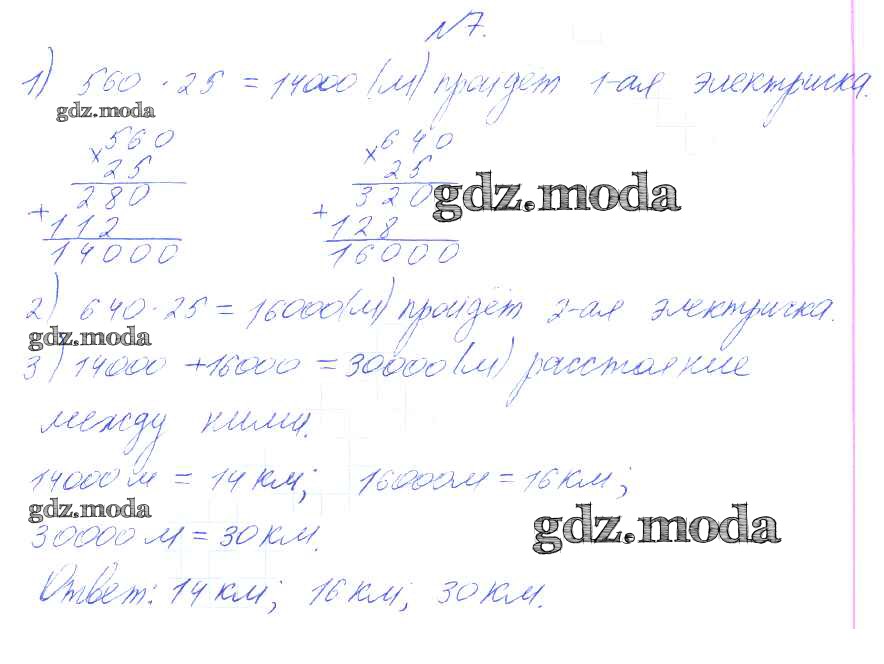 №7.
1) 560 · 25 = 14000 (м) пройдёт 1-ая электричка.
gdz.moda
× 560
25
+ 280
112
14000
× 640
25
+ 320
128
16000
gdz.moda
2) 640 · 25 = 16000 (м) пройдёт 2-ая электричка.
gdz.moda
3) 14000 + 16000 = 30000 (м) расстояние
между ними.
14000 м = 14 км; 16000 м = 16 км;
gdz.moda
gdz.moda
30000 м = 30 км.
Ответ: 14 км; 16 км; 30 км.